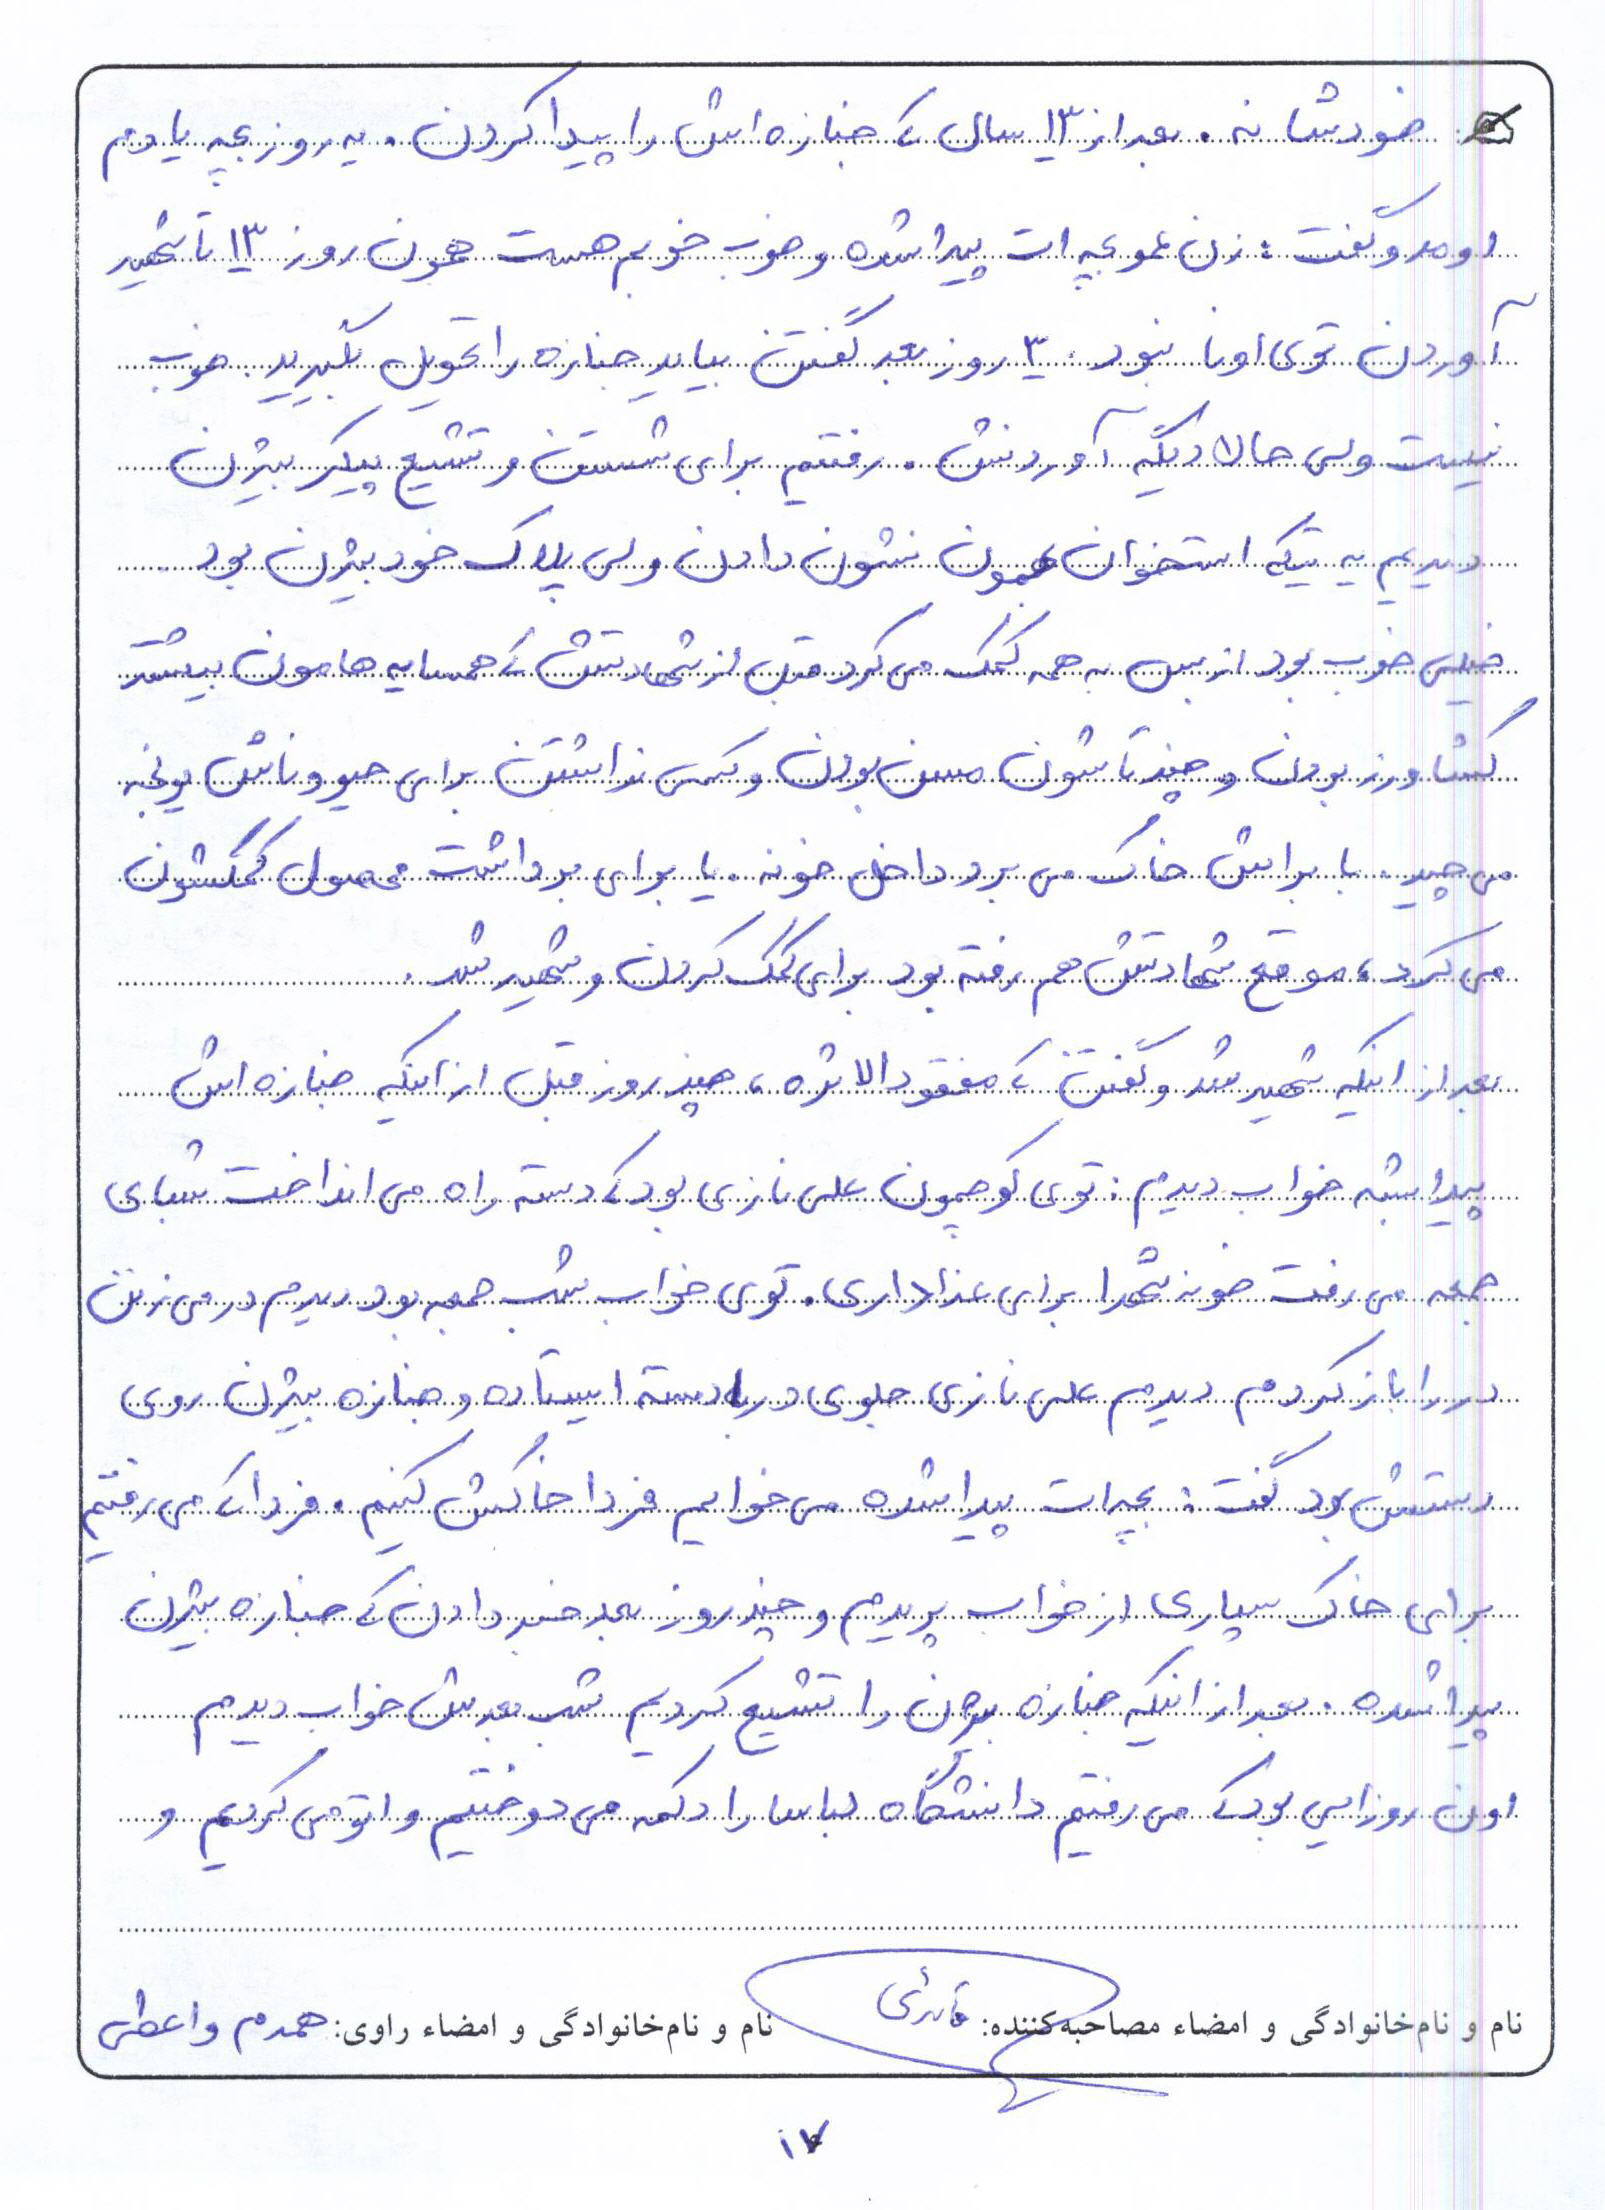 خودشا نه. بعد از ۱۳ سال که جنازه اش را پیدا کردن. یه روز بچه یادم
اومد و گفت: زن عمو بچه ات پیدا شده و خوب خوبم هست همون روز ۱۳ تا شهید
آوردن توی اونا نبود. ۳ روز بعد گفتن بیاید جنازه را تحویل بگیرید. خوب
نیست ولی حالا دیگه آوردنش. رفتیم برای شستن و تشیع پیکر بیژن
دیدیم یه تیکه استخوان بهمون نشون دادن ولی پلاک خود بیژن بود
خیلی خوب بود از بس به همه کمک می کرد قبل از شهادتش که همسایه هامون بیشتر
کشاورز بودن و چند تاشون مسن بودن و کسی نداشتن برای حیووناش یونجه
می چید. یا براش خاک می برد داخل خونه. یا برای برداشت محصول کمکشون
می کرد، موقع شهادتش هم رفته بود برای کمک کردن و شهید شد.
بعد از اینکه شهید شد و گفتن که مفقودالاثره، چند روز قبل از اینکه جنازه اش
پیدا بشه خواب دیدم: توی کوچمون علی نازی بود که دسته راه می انداخت شبای
جمعه می رفت خونه شهدا برای عزاداری. توی خواب شب جمعه بود دیدم در می زنن
در را باز کردم دیدم علی نازی جلوی در با دسته ایستاده و جنازه بیژن روی
دستش بود گفت: بچه ات پیدا شده می خوایم فردا خاکش کنیم. فردا که می رفتیم
برای خاک سپاری از خواب پریدم و چند روز بعد خبر دادن که جنازه بیژن
پیدا شده. بعد از اینکه جنازه بیژن را تشیع کردیم شب بعدش خواب دیدم
اون روزایی بود که می رفتیم دانشگاه لباسا را دکمه می دوختیم و اتو می کردیم و
نام و نام‌خانوادگی و امضاء مصاحبه‌کننده: نام و نام‌خانوادگی و امضاء راوی: همدم واعظی
۱۷